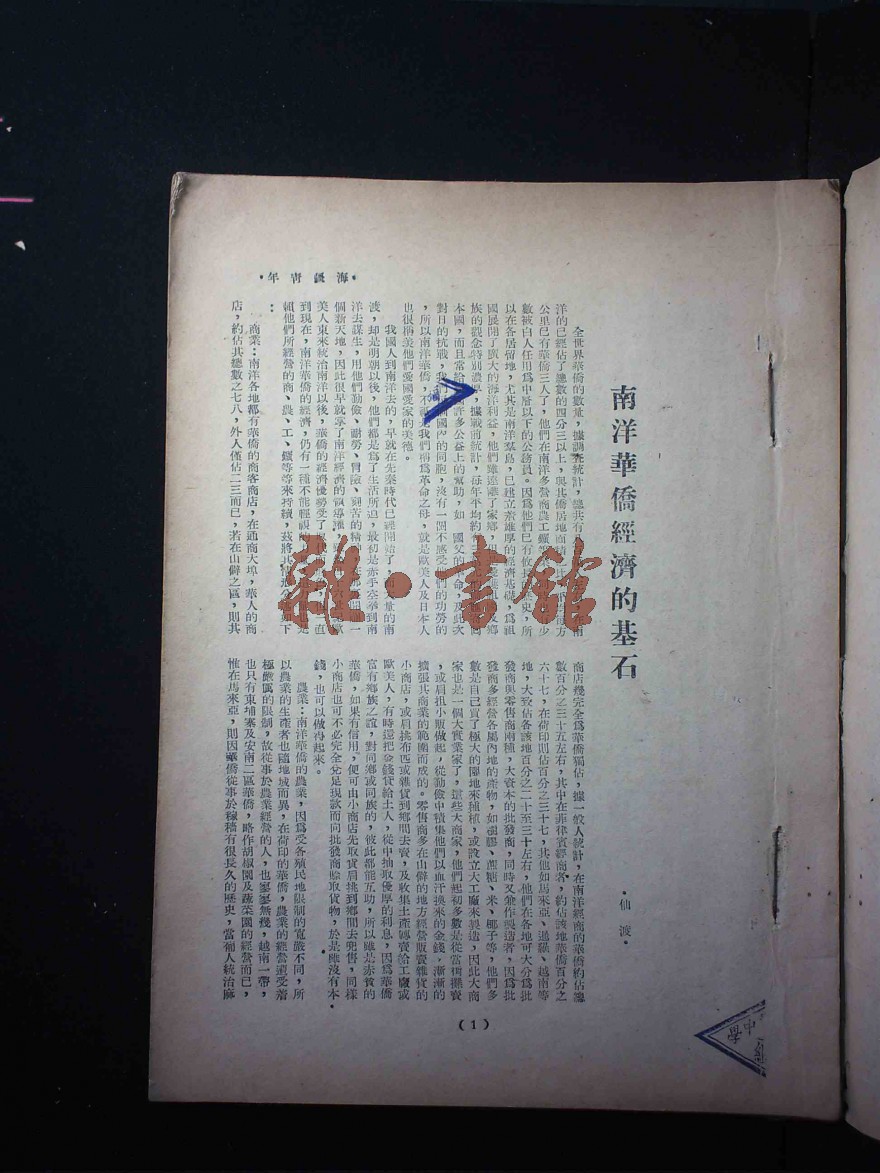 南洋華僑經濟的基石
·仙渡·
·海鏡青年·
全世界華僑的數量，據調查統計，總共有
洋的已經佔了總數的四分三以上，與其僑居地面積
公里已有華僑三人了，他們在南洋多營商農工鑛等
數被白人任用爲中層以下的公務員。因爲他們已有悠
以在各居留地，尤其是南洋羣島，已建立來雄厚的經濟基礎，爲祖
國展開了廣大的海洋利益，他們雖遠離了家鄉，
族的觀念特別濃厚，據戰前統計，每年平均約有
本國，而且常給
許多公益上的幫助，如 國父的革命，及此次
對日的抗戰，我
國內的同胞，沒有一個不感受他們的功勞的
，所以南洋華僑，不
我們稱爲革命之母，就是歐美人及日本人
也很稱美他們愛國愛家的美德。
我國人到南洋去的，早就在先秦時代已經開始了，
大量的南
渡，却是明朝以後，他們都是爲了生活所迫，最初是赤手空拳到南
洋去謀生，用他們勤儉、耐勞、冒險、刻苦的精神，
個新天地，因此很早就掌了南洋經濟的領導權，
美人東來統治南洋以後，華僑的經濟優勢受了
到現在，南洋華僑的經濟，仍有一種不能輕視的
賴他們所經營的商、農、工、鑛等等來持續，茲將
如下
：
商業：南洋各地都有華僑的商客商店，在通商大埠，華人的商
店，約佔其總數之七八，外人僅佔二三而已，若在山僻之區，則其
商店幾完全爲華僑獨佔，據一般人統計，在南洋經商的華僑約佔總
數百分之三十五左右，其中在菲律賓經商者，約佔該地華僑百分之
六十七，在荷印則佔百分之三十七，其他如馬來亞、暹羅、越南等
地，大致佔各該地百分之二十至三十左右，他們在各地可大分爲批
發商與零售商兩種，大資本的批發商，同時又兼作製造者，因爲批
發商多經營各屬內地的產物，如樹膠、蔗糖、米、椰子等，他們多
數是自己買了極大的園地來種植，或設立大工廠來製造，因此大商
家也是一個大實業家了，這些大商家，他們起初多數是從當街擺賣
，或肩担小販做起，從勤儉中積集他們以血汗換來的金錢，漸漸的
擴張其商業的範圍而成的。零售商多在山僻的地方經營販賣雜貨的
小商店，或肩挑布匹或雜貨到鄉間去賣，及收集土產轉賣給工廠或
歐美人，有時還把金錢貸給土人，從中抽取優厚的利息，因爲華僑
富有鄉族之誼，對同鄉或同族的，彼此都能互助，所以雖是赤貧的
華僑，如果有信用，便可由小商店先取貨肩挑到鄉間去兜售，同樣
小商店也可不必完全兌足現款而向批發商賒取貨物，於是雖沒有本
錢，也可以做得起來。
農業：南洋華僑的農業，因爲受各殖民地限制的寬嚴不同，所
以農業的生產者也隨地域而異，在荷印的華僑，農業的經營遭受着
極嚴厲的限制，故從事於農業經營的人，也寥寥無幾，越南一帶，
也只有柬埔寨及安南二區華僑，略作胡椒園及蔬菜園的經營而已，
惟在馬來亞，則因華僑從事於稼穡有很長久的歷史，當葡人統治麻
（1）
雜·書館